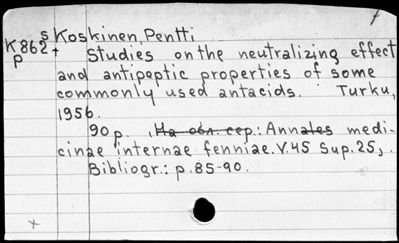 s Koskinen, Pentti
K862 + Studies on the neutralizing effect
p and antipeptic properties of some
commonly used antacids. Turku,
1956.
90 p. , На обл. сер.: Annales medi-
cinae internae fenniae. V.45 Sup.25,.
Bibliogr.: p.85-90.